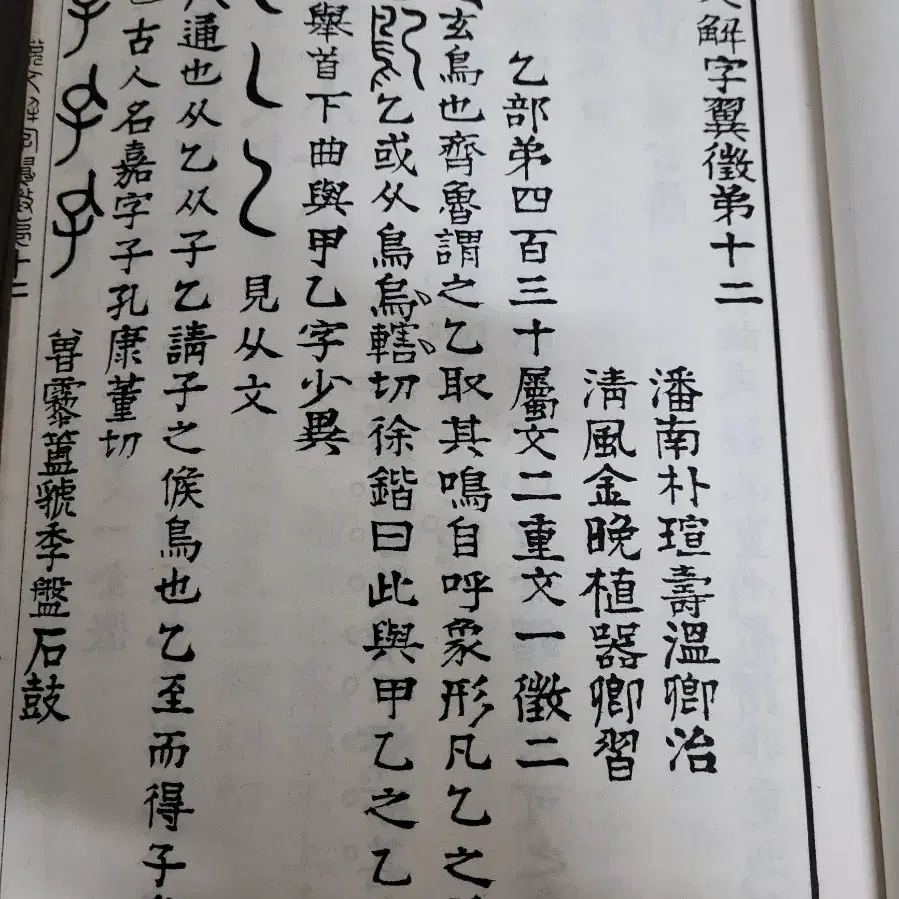 解字翼徵第十二
潘南朴瑄壽溫卿治
淸風金晩植器卿習
乞部弟四百三十屬文二重文一徵二
玄鳥也齊魯謂之乞取其鳴自呼象形凡乞之
乞或从鳥烏轄切徐鍇曰此與甲乙之乙
舉首下曲與甲乙字少異
見从文
通也从乞从子乞請子之候鳥也乞至而得子
古人名嘉字子孔康董切
子子 曾霥簠虢季盤石鼓